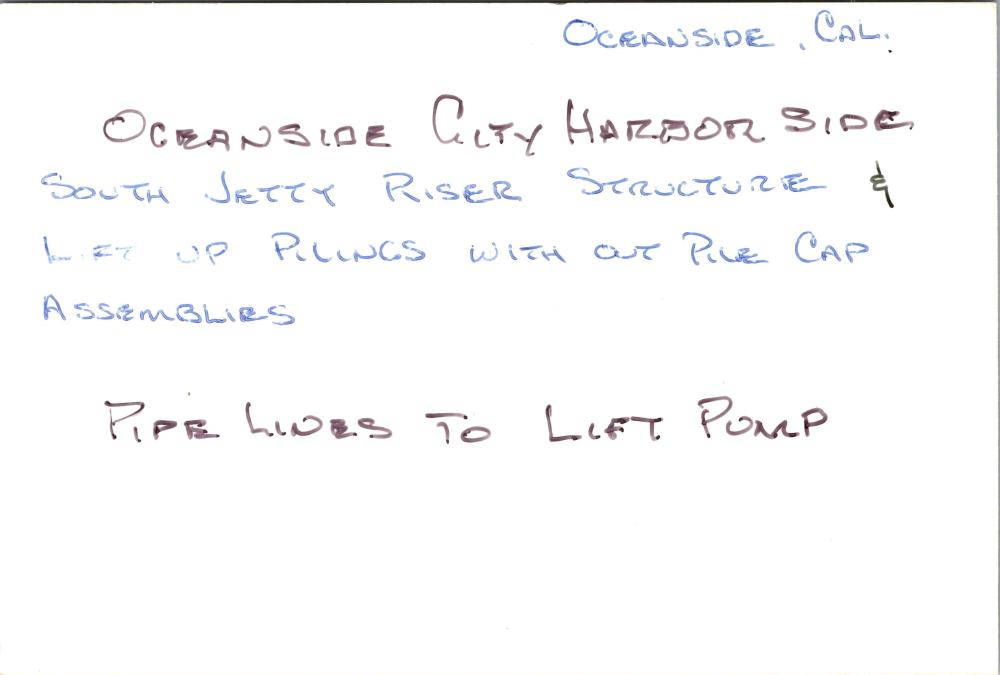 OCEANSIDE, CAL.
OCEANSIDE CITY HARBOR SIDE
SOUTH JETTY RISER STRUCTURE &
LIFT UP PILINGS WITH OUT PILE CAP
ASSEMBLIES
PIPE LINES TO LIFT PUMP